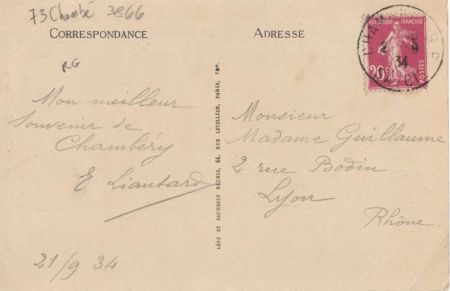 73 Chambé 3866
CORRESPONDANCE
ADRESSE
RG
Mon meilleur
Souvenir de
Chambéry
E Liautard
21/9 34
LÉVY ET NEURDEIN RÉUNIS, 44, RUE LETELLIER, PARIS, IMP.
REPUBLIQUE FRANÇAISE
20c
POSTES
2
34
Monsieur
Madame Guillaume
2 rue Bodin
Lyon
Rhône.